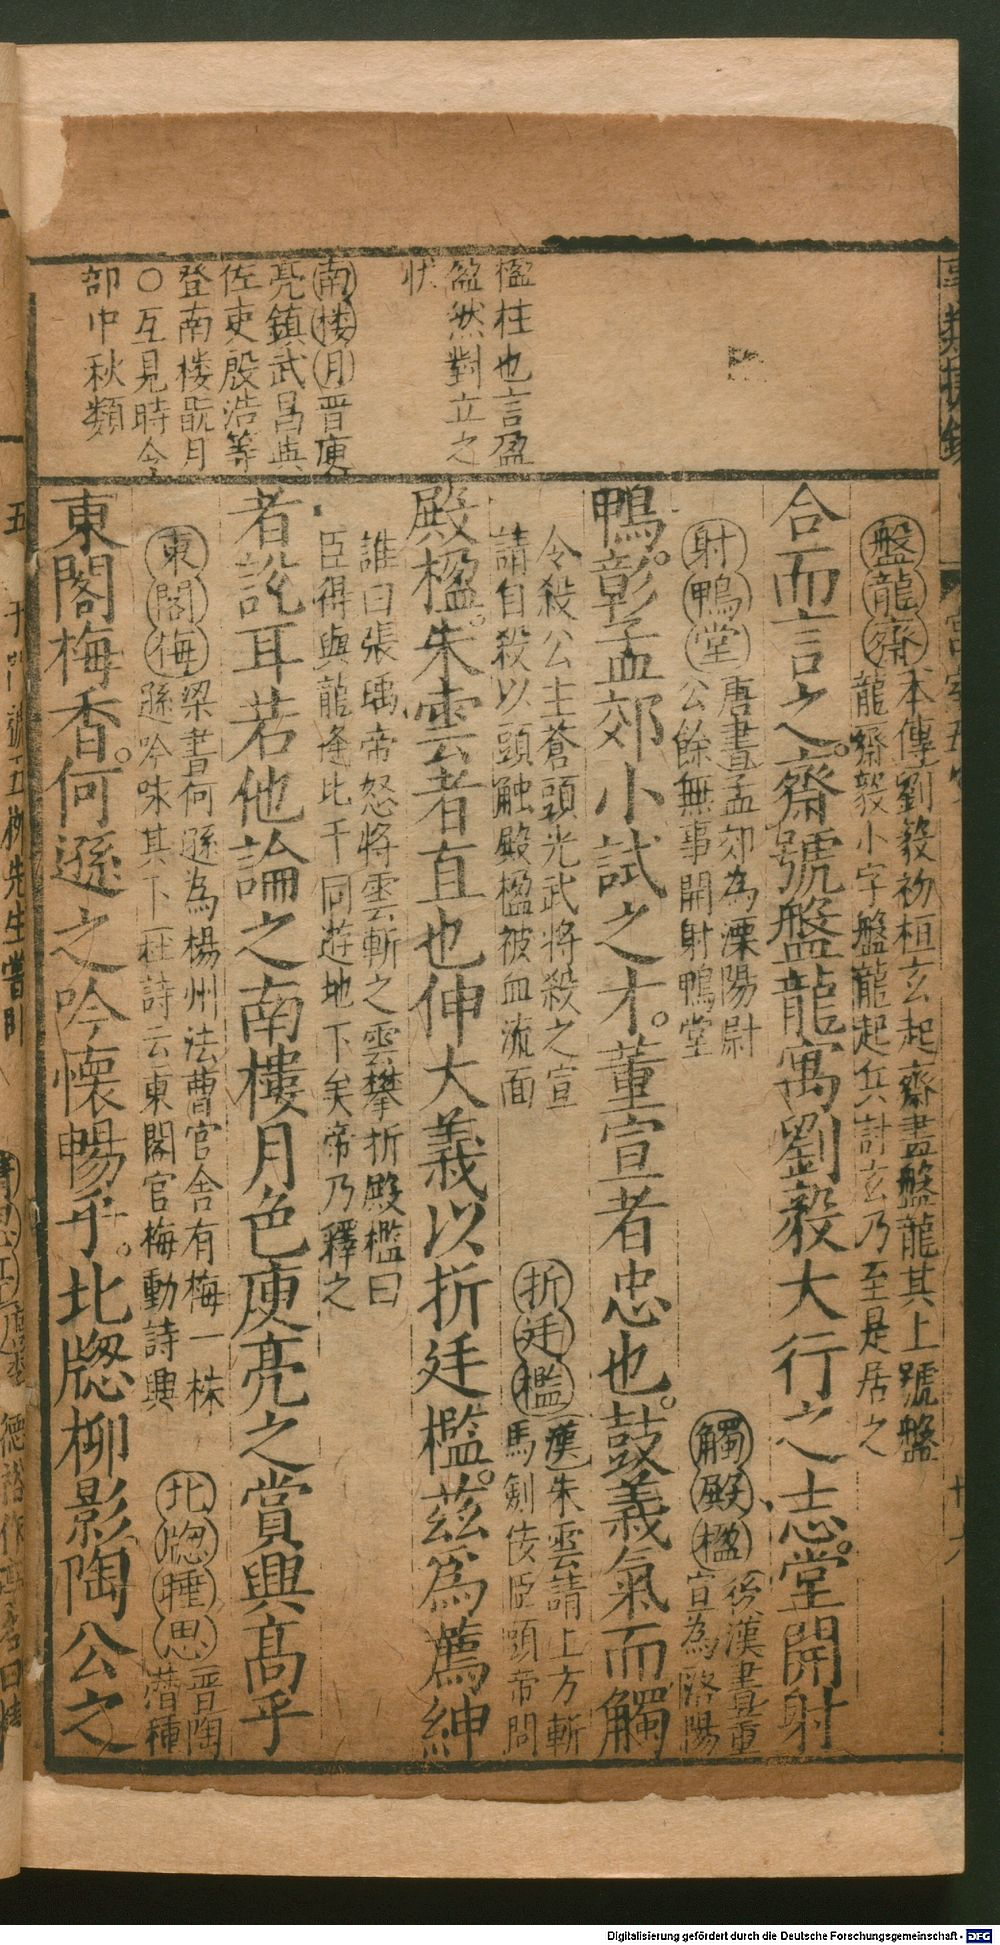 楹柱也言盈
盈然對立之
状
南楼月晋庾
亮鎮武昌與
佐吏殷浩等
登南楼翫月
○互見時令
部中秋類
盤龍齋本傳劉毅初桓玄起齋畫盤龍其上號盤
龍齋毅小字盤龍起兵討玄乃至是居之
合而言之齋號盤龍寓劉毅大行之志堂開射
射鴨堂唐書孟郊為溧陽尉
公餘無事開射鴨堂
觸殿楹後漢書董
宣為洛陽
鴨彰孟郊小試之才董宣者忠也鼓義氣而觸
令殺公主蒼頭光武将殺之宣
請自殺以頭触殿楹被血流面
折廷檻漢朱雲請上方斬
馬劍佞臣頭帝問
殿楹朱雲者直也伸大義以折廷檻茲爲薦紳
誰曰張禹帝怒将雲斬之雲攀折殿檻曰
臣得與龍逄比干同遊地下矣帝乃釋之
者說耳若他論之南樓月色庾亮之賞興髙乎
東閣梅梁書何遜為楊州法曹官舎有梅一株
遜吟咏其下杜詩云東閣官梅動詩興
北牎睡思晋陶
潛種
東閣梅香何遜之吟懷暢乎北牎柳影陶公之
Digitalisierung gefördert durch die Deutsche Forschungsgemeinschaft - DFG